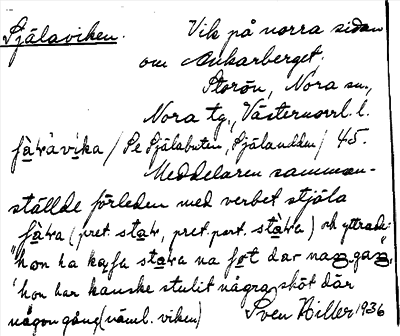 Själaviken. Vik på norra sidan
om Ankarberget,
Storön, Nora sn.,
Nora tg., Västernorrl. l.
/ Se Själabuten, Själaudden / 45.
Meddelaren samman-
ställde förleden med verbet stjäla
(pret. pret. part. ) och yttrade:
"hon ha na
'hon har kanske stulit några sköt där
någon gång (näml. viken) Sven Hiller 1936